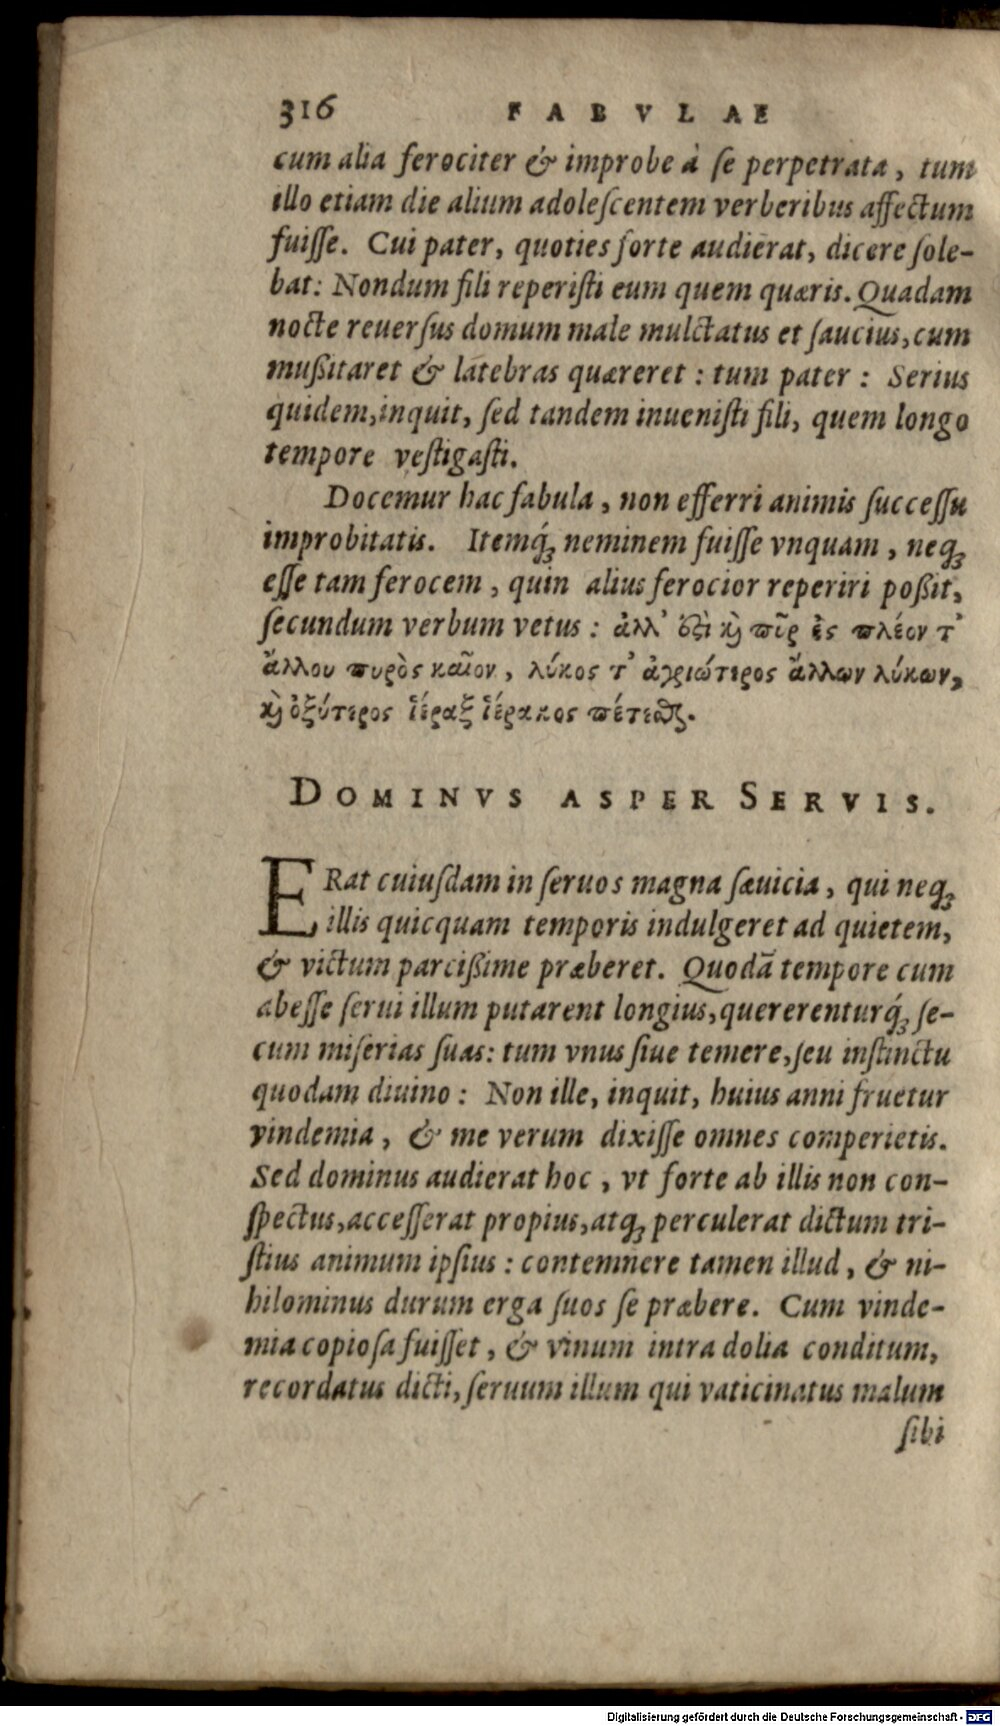 316 FABVLAE
cum alia ferociter & improbe à ſe perpetrata, tum
illo etiam die alium adoleſcentem verberibus affectum
fuiſſe. Cui pater, quoties forte audierat, dicere ſole-
bat: Nondum fili reperiſti eum quem quæris. Quadam
nocte reuerſus domum male mulctatus et ſaucius, cum
mußitaret & latebras quæreret: tum pater: Serius
quidem, inquit, ſed tandem inueniſti fili, quem longo
tempore veſtigaſti.
Docemur hac fabula, non efferri animis ſucceſſu
improbitatis. Itemq́; neminem fuiſſe vnquam, neq;
eſſe tam ferocem, quin alius ferocior reperiri poßit,
ſecundum verbum vetus: ἀλλ' ὅτι καὶ πῦρ ἐς πλέον τ'
ἄλλου πυρὸς καῖον, λύκος τ' ἀγριώτερος ἄλλων λύκων,
καὶ ὀξύτερος ἵέραξ ἵέρακος πέτεσθαι.
DOMINVS ASPER SERVIS.
ERat cuiuſdam in ſeruos magna ſæuicia, qui neq;
illis quicquam temporis indulgeret ad quietem,
& victum parcißime præberet. Quodã tempore cum
abeſſe ſerui illum putarent longius, quererenturq́; ſe-
cum miſerias ſuas: tum vnus ſiue temere, ſeu inſtinctu
quodam diuino: Non ille, inquit, huius anni fruetur
vindemia, & me verum dixiſſe omnes comperietis.
Sed dominus audierat hoc, vt forte ab illis non con-
ſpectus, acceſſerat propius, atq; perculerat dictum tri-
ſtius animum ipſius: contemnere tamen illud, & ni-
hilominus durum erga ſuos ſe præbere. Cum vinde-
mia copioſa fuiſſet, & vinum intra dolia conditum,
recordatus dicti, ſeruum illum qui vaticinatus malum
ſibi
Digitalisierung gefördert durch die Deutsche Forschungsgemeinschaft - DFG